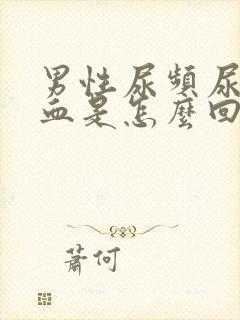 男性尿頻尿
血是怎麼回
蕭何